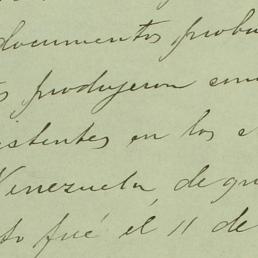 documentos proba
s produjeron
istentes en los a
Venezuela, de gu
to fué el 11 de